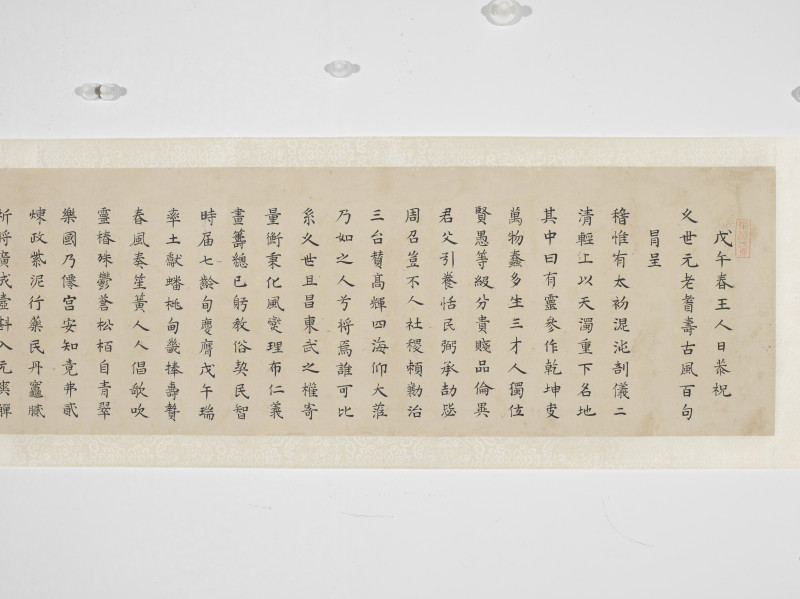 戊午春王人日恭祝
久世元老耆壽古風百句
冒呈
稽惟有太初混沌剖儀二
清輕上以天濁重下名地
其中曰有靈參作乾坤吏
萬物蠢多生三才人獨位
賢愚等級分貴賤品倫異
君父引養恬民弼承劼毖
周召豈不人社稷賴勷治
三台贊高輝四海仰大蒞
乃如之人兮將焉誰可比
系久世且昌東武之權寄
量衡秉化風燮理布仁義
畫籌總已躬教俗契民智
時届七齡旬慶膺戊午瑞
率土獻蟠桃甸畿捧壽贄
春風奏笙黃人人倡歌吹
靈椿殊鬱蒼松栢自青翠
樂國乃僊宮安知竟弗貳
煉政紫泥行藥民丹竈熾
斨將廣成壺斟入元